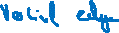 Vertical edge